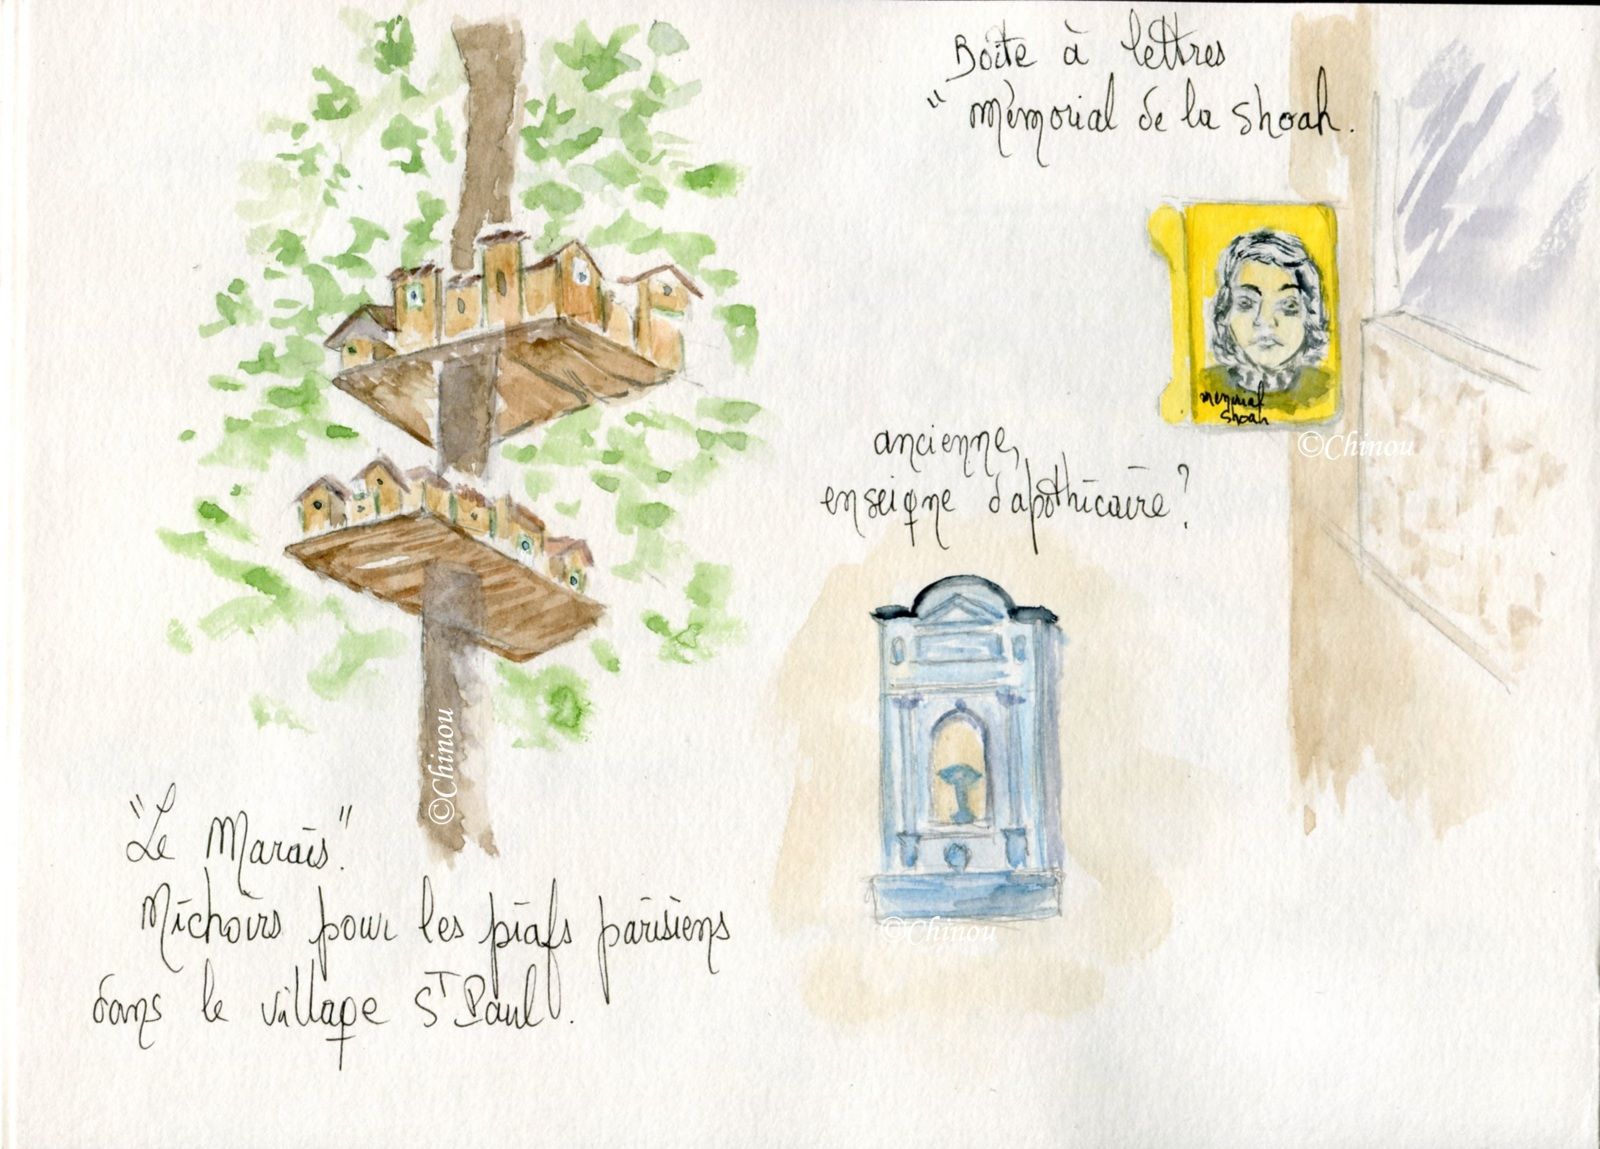 Boîte à lettres
" mémorial de la shoah.
memorial
shoah
©Chinou
ancienne,
enseigne d'apothicaire?
©Chinou
©Chinou
"Le Marais".
Nichoirs pour les piafs parisiens
dans le village ST Paul.